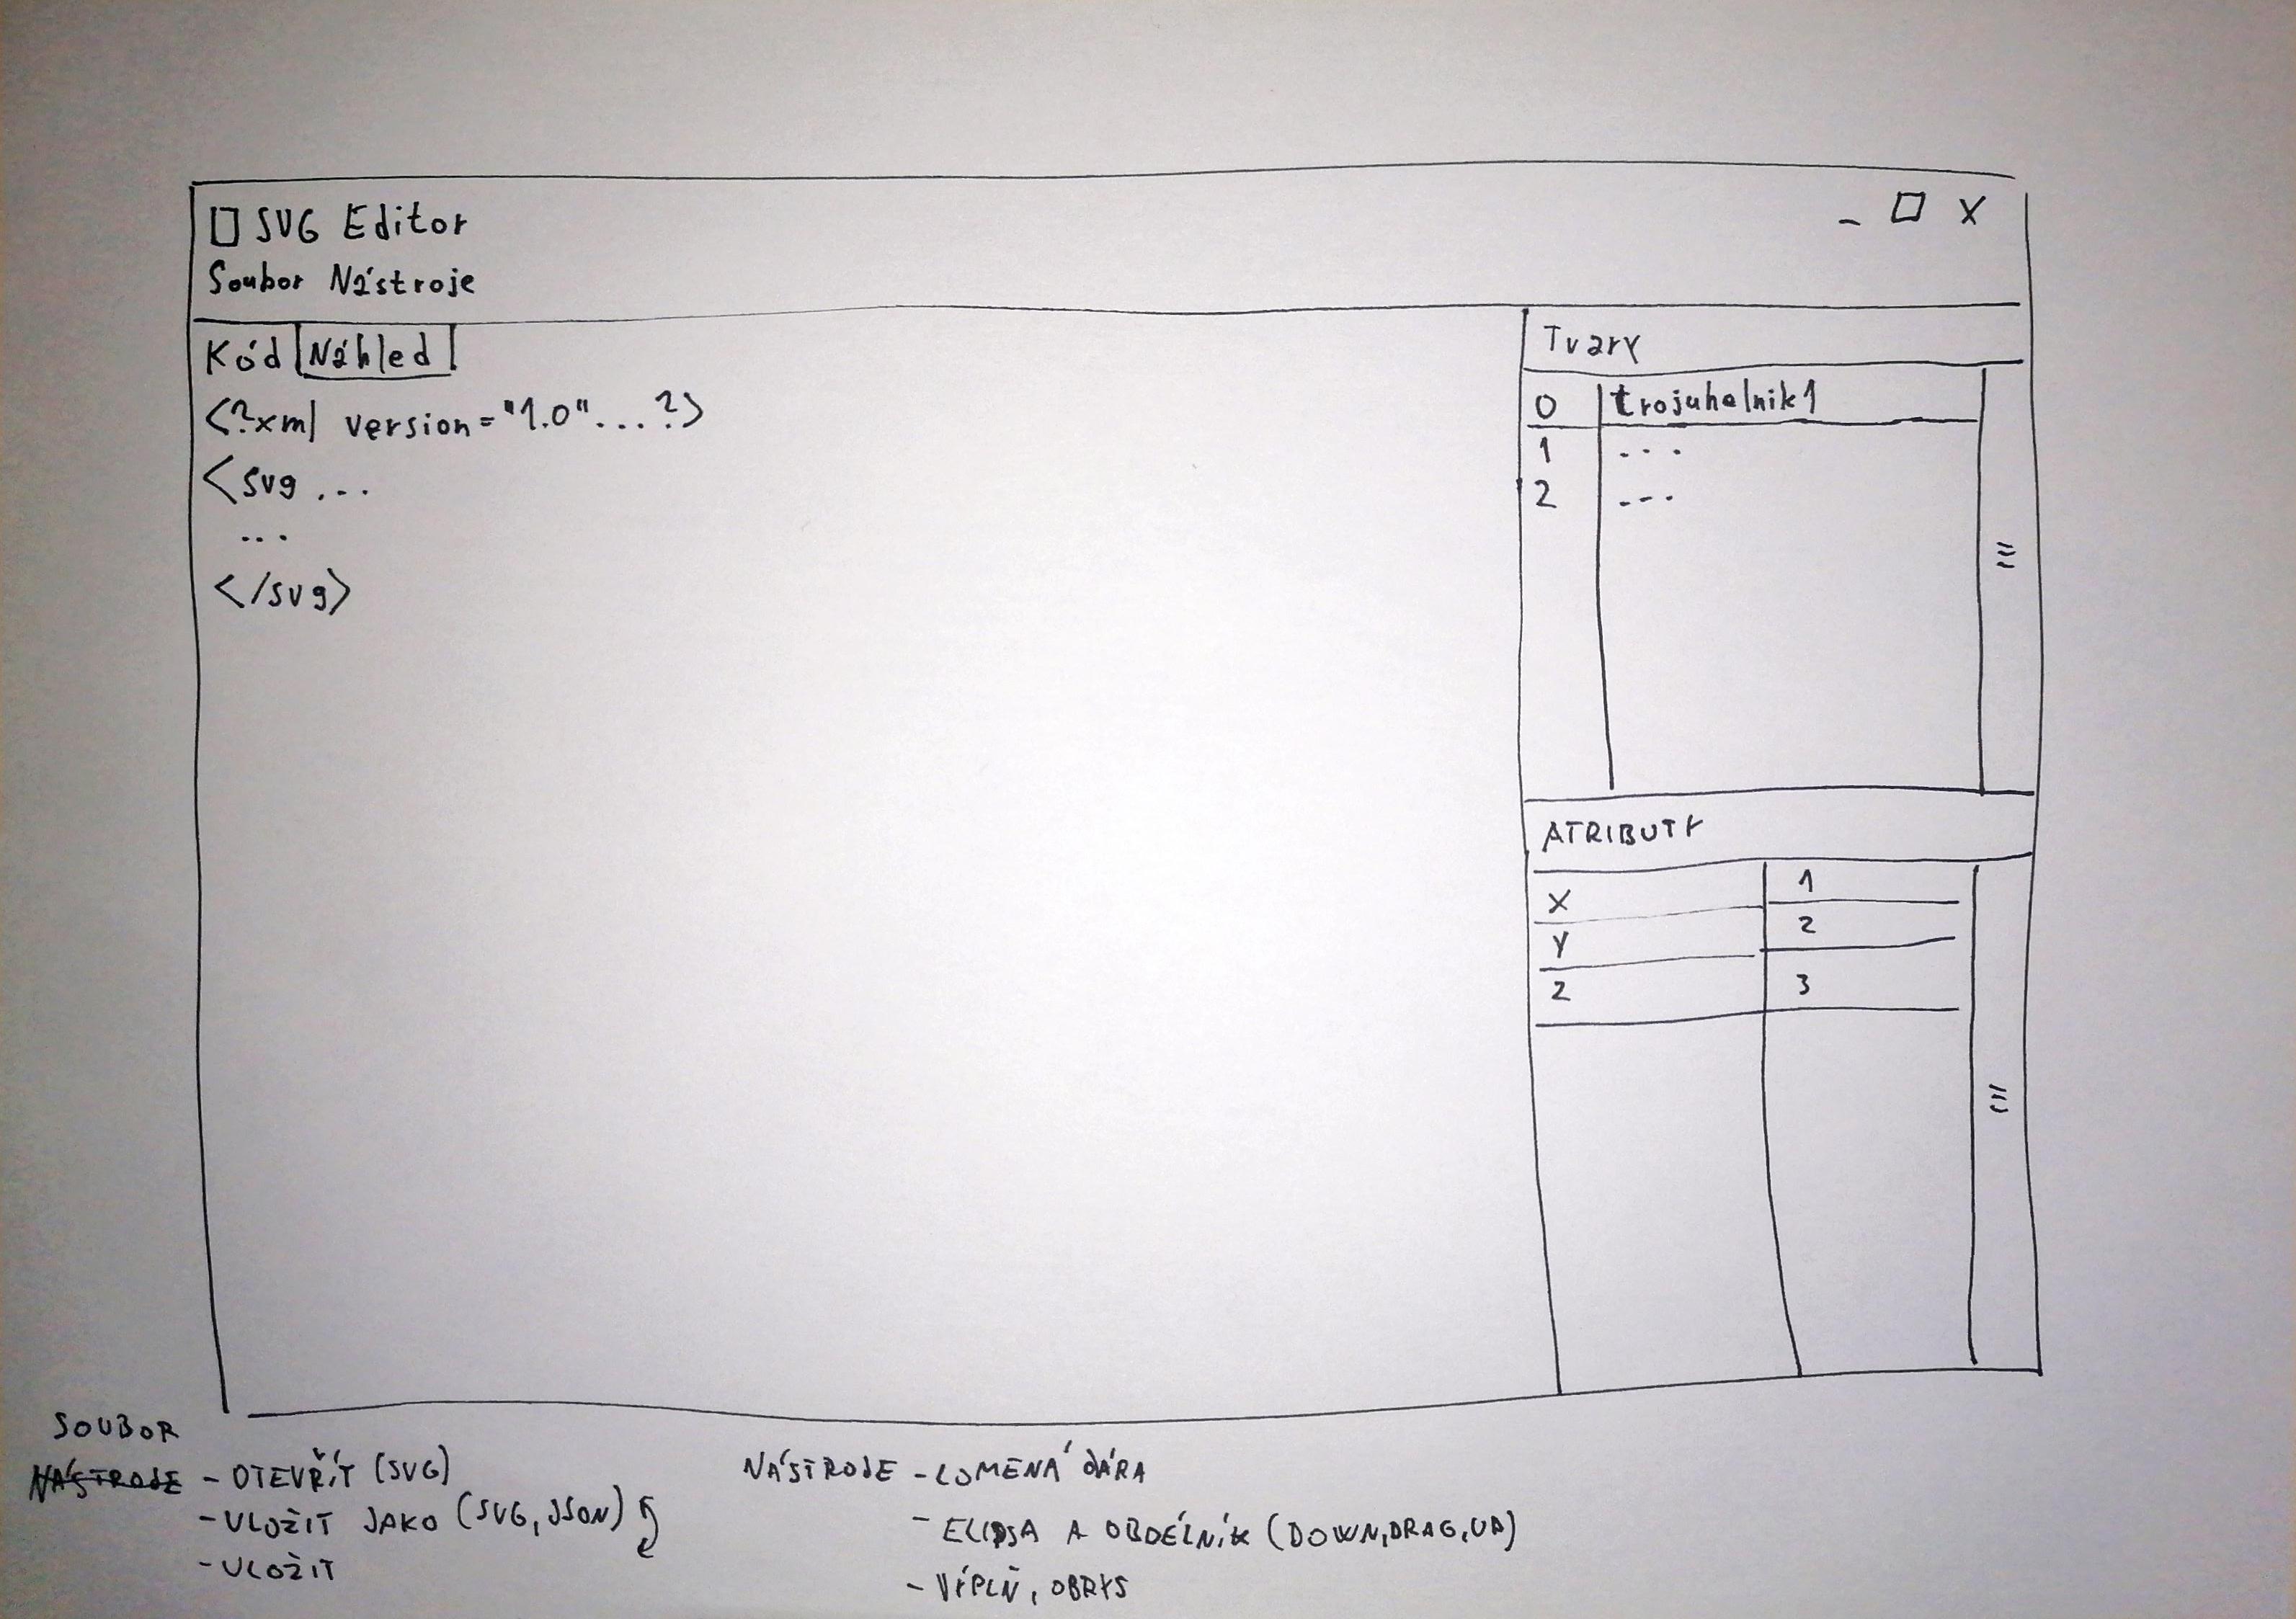 SVG Editor
_ □ X
Soubor Nástroje
Kód Náhled
<?xml version="1.0"...?>
<svg ...
...
</svg>
Tvary
0 trojuhelnik1
1 ...
2 ...
ATRIBUTY
X 1
Y 2
Z 3
SOUBOR
NÁSTROJE - OTEVŘÍT (SVG)
- ULOŽIT JAKO (SVG, JSON)
- ULOŽIT
NÁSTROJE - LOMENÁ ČÁRA
- ELIPSA A OBDÉLNÍK (DOWN, DRAG, UP)
- VÝPLŇ, OBRYS